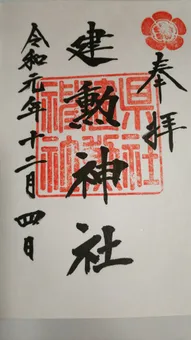 奉拝
建勲神社
令和元年十二月四日
県社
神社